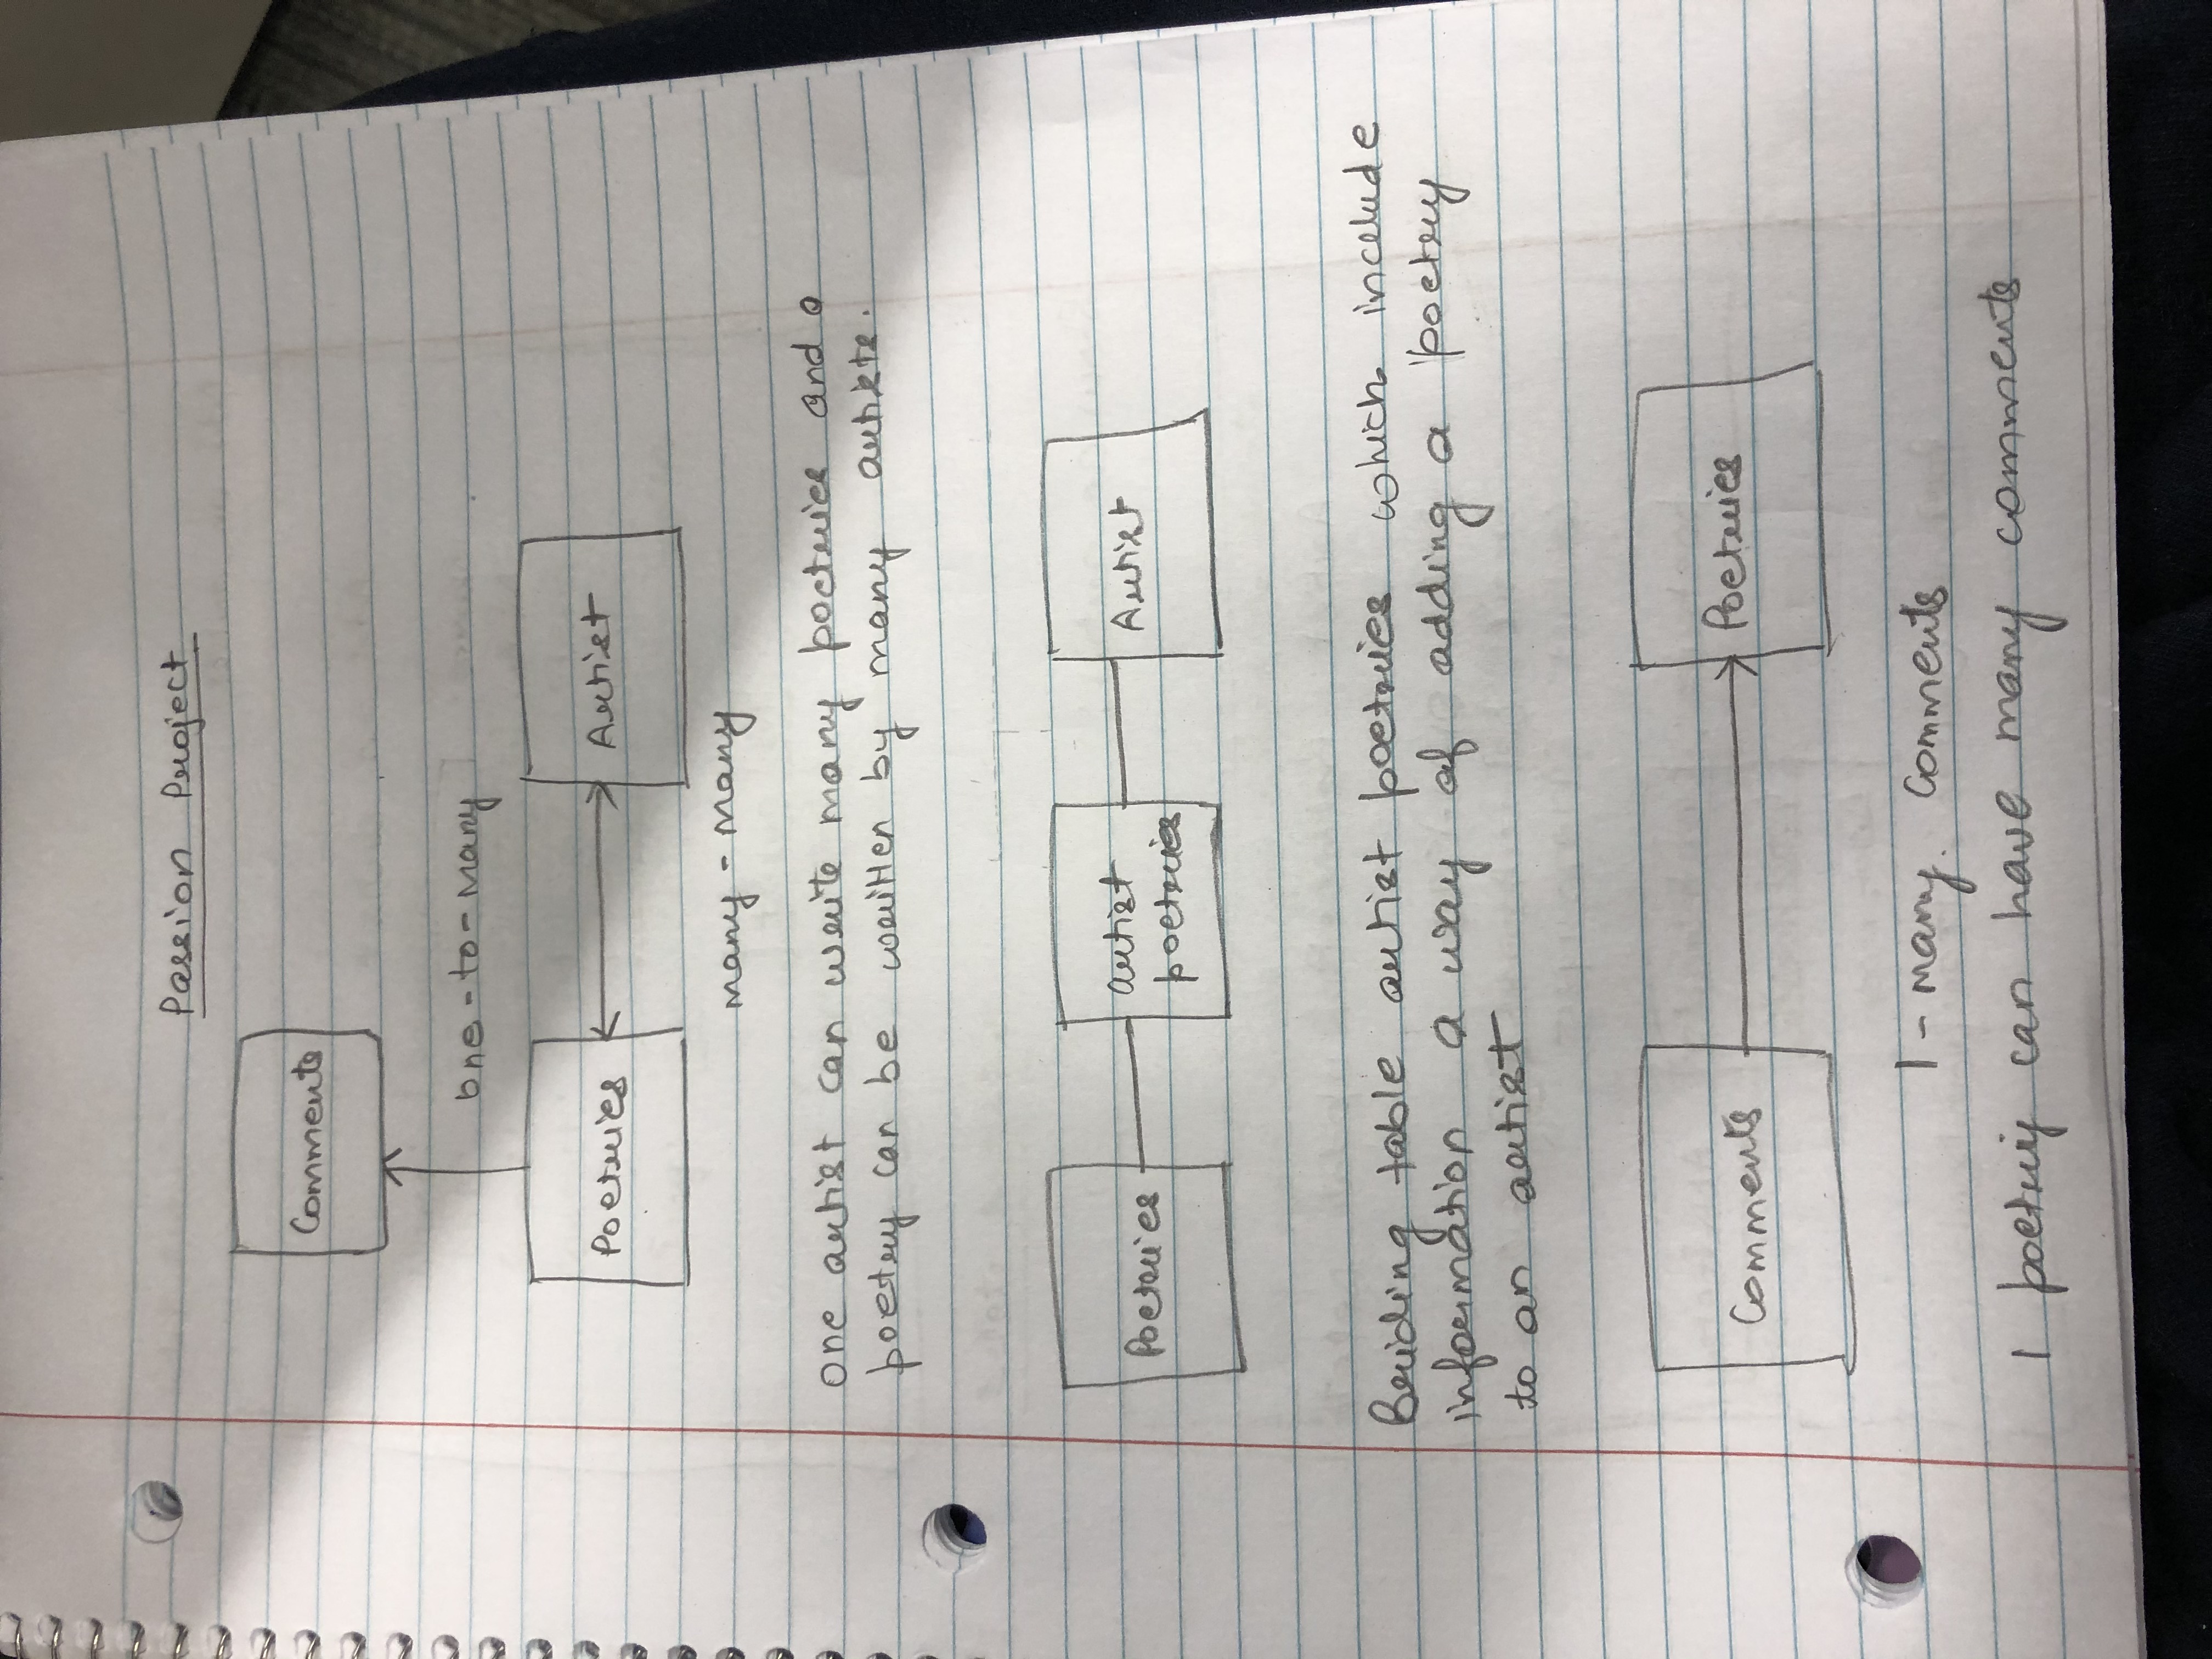 Passion Project
Comments
one-to-many
Poetries
Artist
many-many
one artist can write many poetries and a
poetry can be written by many artists.
Poetries
artist
poetries
Artist
Briding table artist poetries which include
information a way of adding a poetry
to an artist
Comments
Poetries
1-many. Comments
1 poetry can have many comments